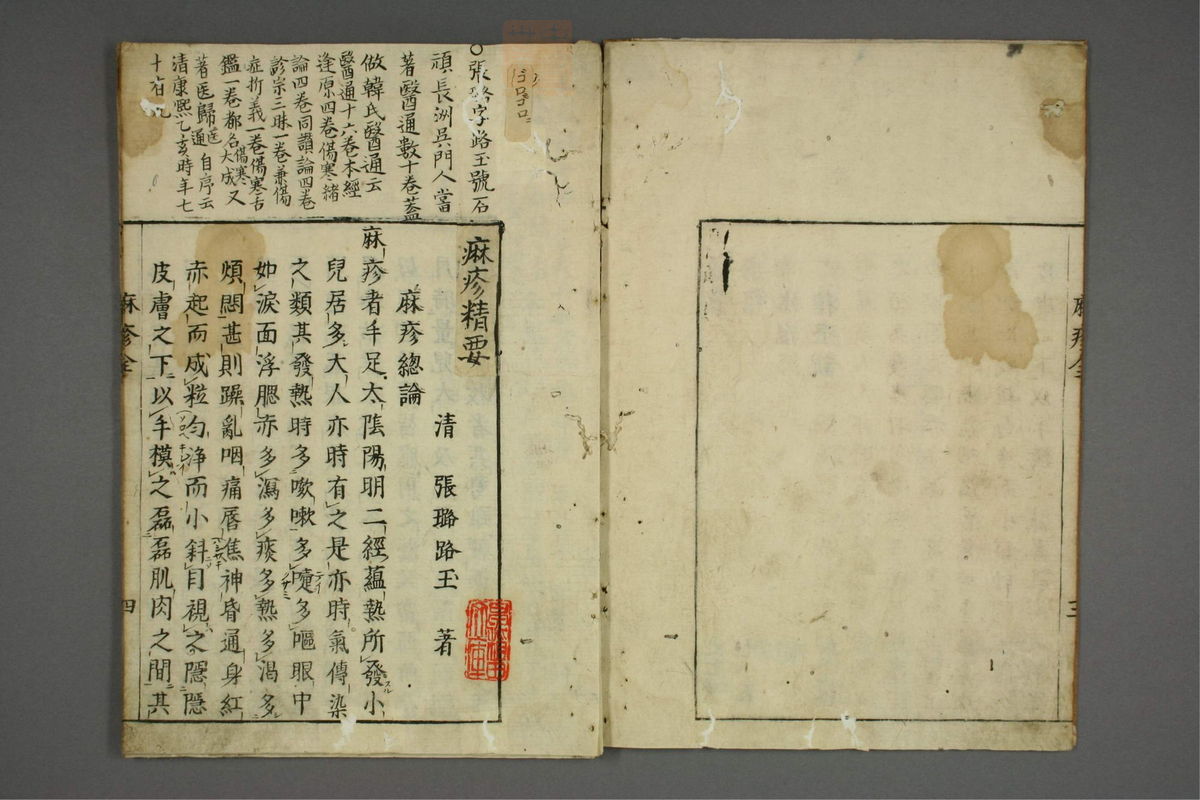 ○張璐字路玉號石
頑長洲吳門人嘗
著醫通數十卷蓋
倣韓氏醫通云
醫通十六卷本經
逢原四卷傷寒緒
論四卷同纘論四卷
診宗三昧一卷兼傷
症析義一卷傷寒舌
鑑一卷都名傷寒大成又
著医歸医通自序云
清康熙乙亥時年七
十有九
麻疹精要
清 張璐路玉 著
麻疹總論
麻疹者手足太陰陽明二經蘊熱所發小
兒居多大人亦時有之是亦時氣傳染
之類其發熱時多嗽多嚏多嘔眼中
如淚面浮腮赤多瀉多痰多熱多渴多
煩悶甚則躁亂咽痛唇焦神昏通身紅
赤起而成粒勻淨而小斜目視之隱隱
皮膚之下以手模之磊磊肌肉之間其
麻疹全
四
麻疹全
三